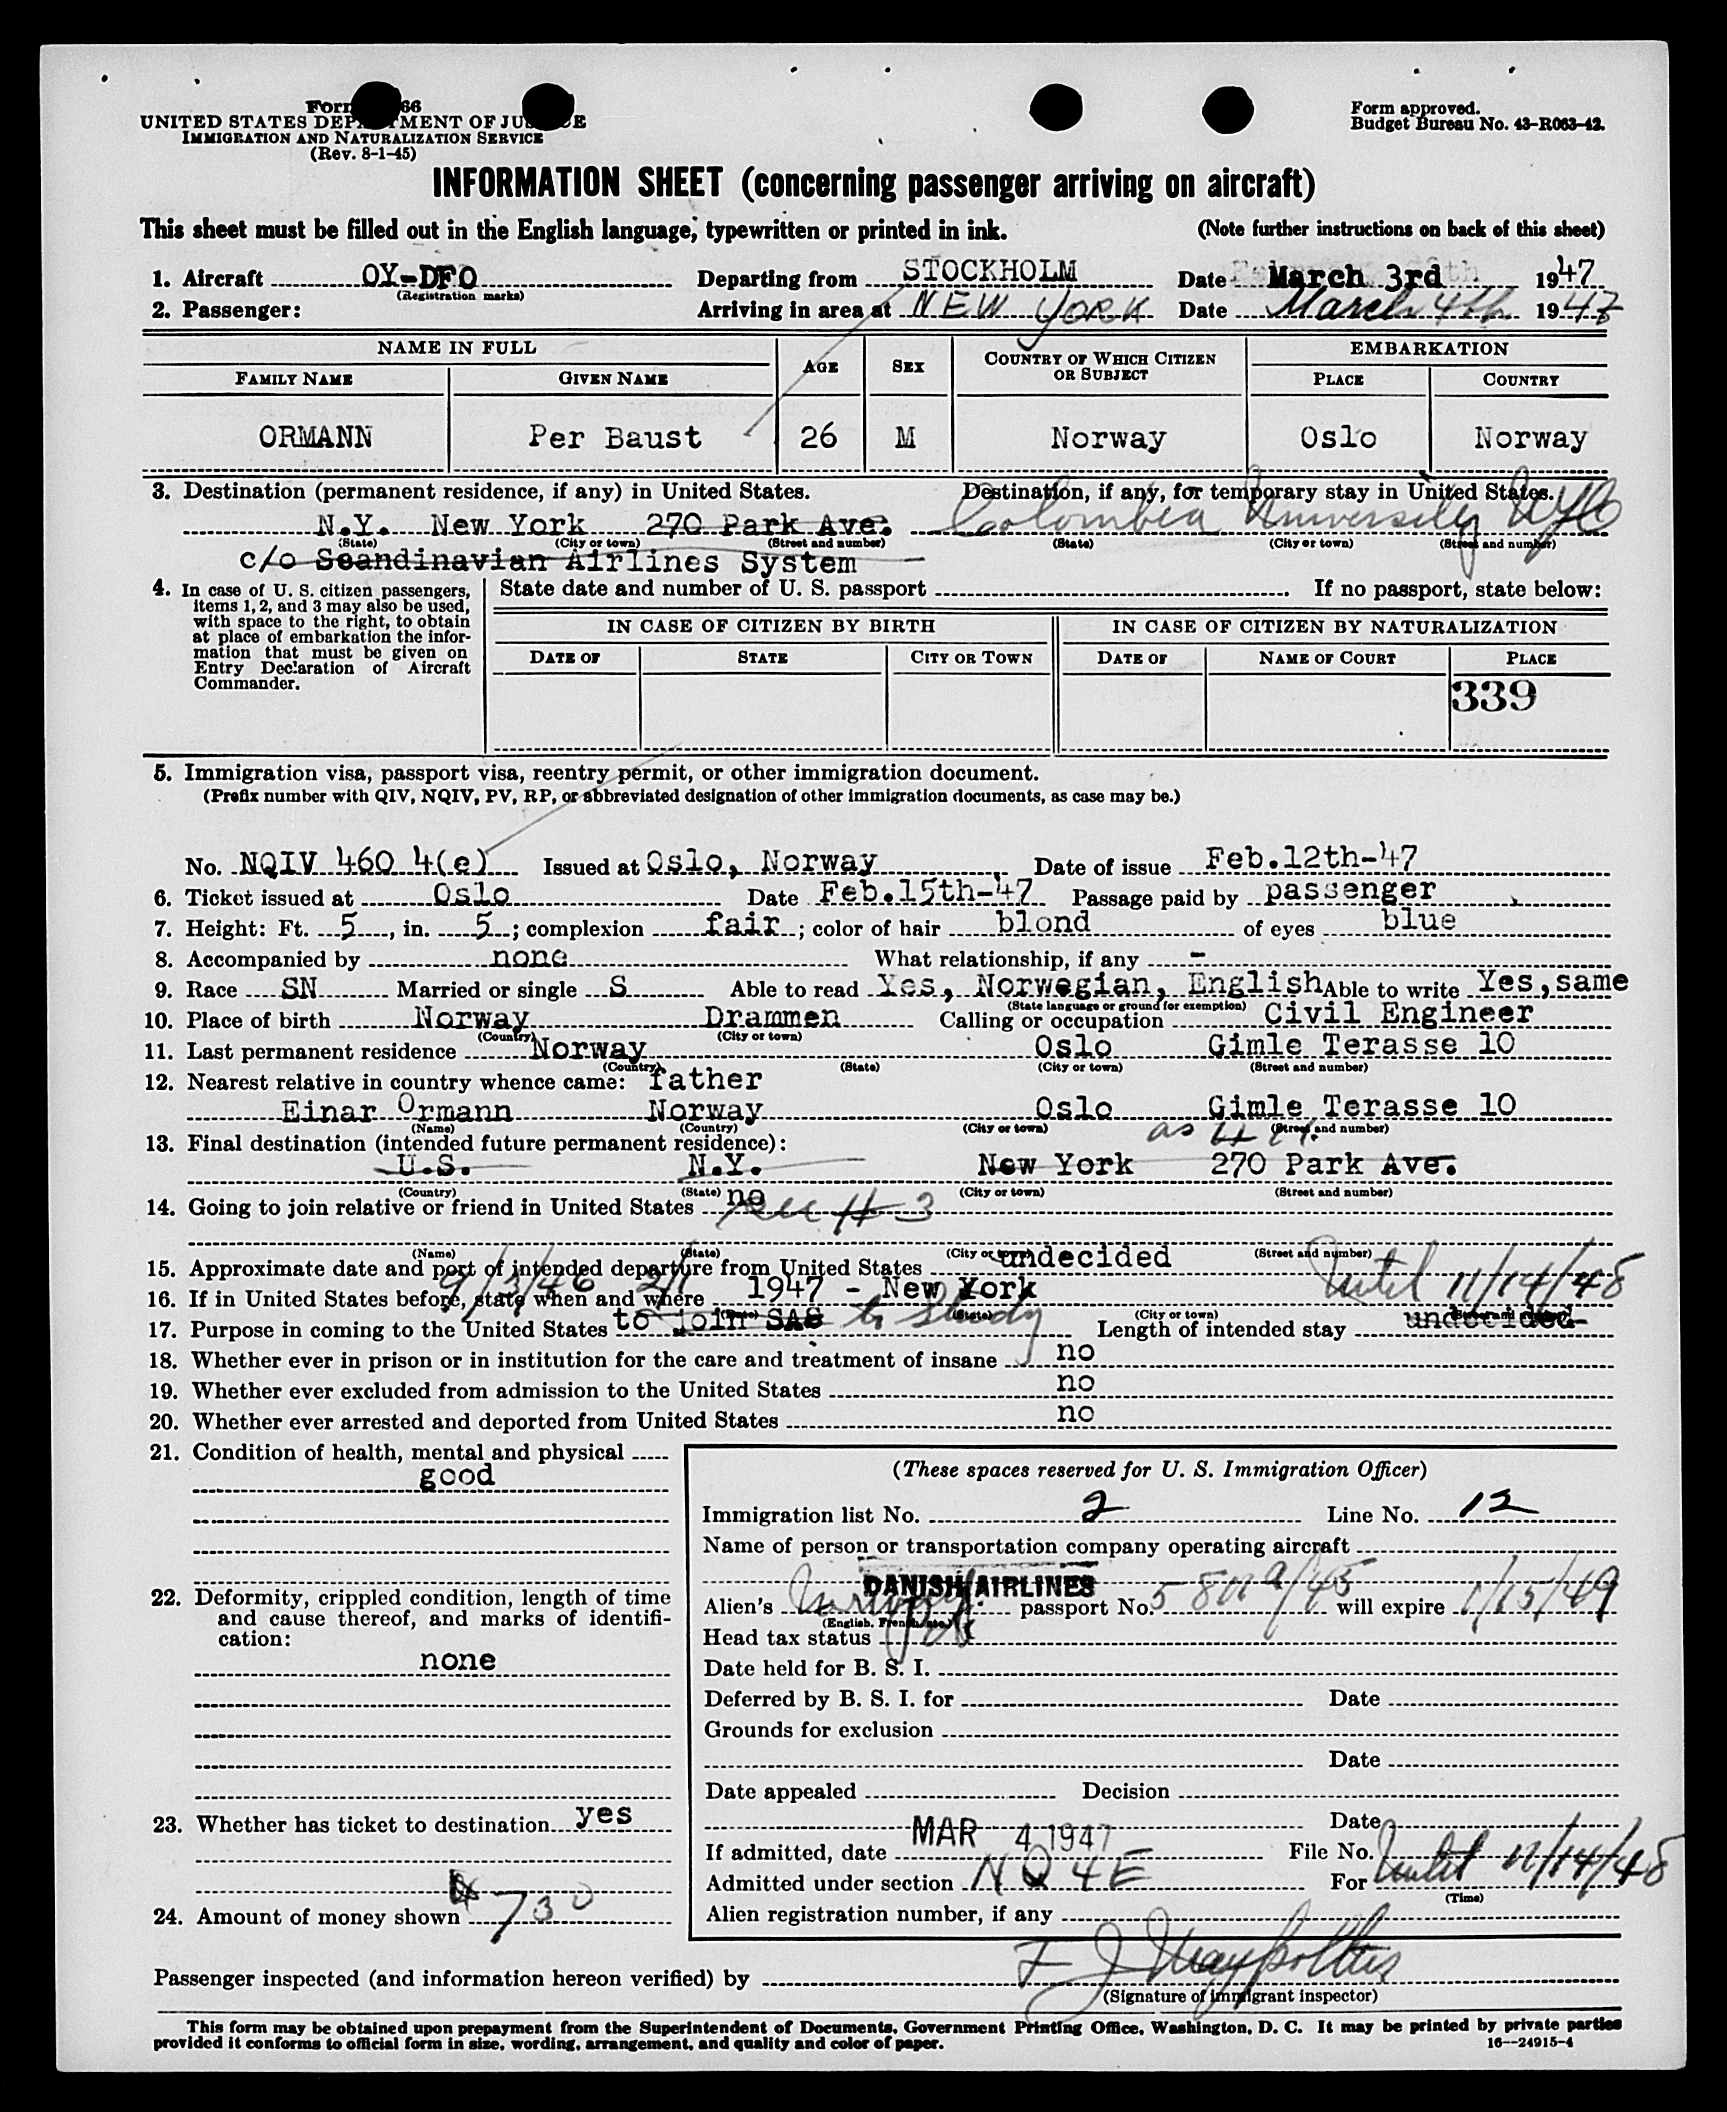 Form 66
UNITED STATES DEPARTMENT OF JUSTICE
IMMIGRATION AND NATURALIZATION SERVICE
(Rev. 8-1-45)
Form approved.
Budget Bureau No. 43-R063-42.
INFORMATION SHEET (concerning passenger arriving on aircraft)
This sheet must be filled out in the English language, typewritten or printed in ink.
(Note further instructions on back of this sheet)
1. Aircraft OY-DFO Departing from STOCKHOLM Date March 3rd 1947
(Registration marks)
2. Passenger: Arriving in area at NEW YORK Date March 4th 1947
NAME IN FULL AGE SEX COUNTRY OF WHICH CITIZEN OR SUBJECT EMBARKATION
FAMILY NAME GIVEN NAME PLACE COUNTRY
ORMANN Per Baust 26 M Norway Oslo Norway
3. Destination (permanent residence, if any) in United States. Destination, if any, for temporary stay in United States.
N.Y. New York 270 Park Ave. Colombia University NYC
(State) (City or town) (Street and number) (State) (City or town) (Street and number)
c/o Scandinavian Airlines System
4. In case of U. S. citizen passengers, items 1, 2, and 3 may also be used, with space to the right, to obtain at place of embarkation the information that must be given on Entry Declaration of Aircraft Commander.
State date and number of U. S. passport If no passport, state below:
IN CASE OF CITIZEN BY BIRTH IN CASE OF CITIZEN BY NATURALIZATION
DATE OF STATE CITY OR TOWN DATE OF NAME OF COURT PLACE
339
5. Immigration visa, passport visa, reentry permit, or other immigration document.
(Prefix number with QIV, NQIV, PV, RP, or abbreviated designation of other immigration documents, as case may be.)
No. NQIV 460 4(e) Issued at Oslo, Norway Date of issue Feb.12th-47
6. Ticket issued at Oslo Date Feb.15th-47 Passage paid by passenger
7. Height: Ft. 5, in. 5; complexion fair; color of hair blond of eyes blue
8. Accompanied by none What relationship, if any -
9. Race SN Married or single S Able to read Yes, Norwegian, English Able to write Yes, same
(State language or ground for exemption)
10. Place of birth Norway Drammen Calling or occupation Civil Engineer
(Country) (City or town)
11. Last permanent residence Norway Oslo Gimle Terasse 10
(Country) (State) (City or town) (Street and number)
12. Nearest relative in country whence came: father
Einar Ormann Norway Oslo Gimle Terasse 10
(Name) (Country) (City or town) (Street and number)
13. Final destination (intended future permanent residence): as
U.S. N.Y. New York 270 Park Ave.
(Country) (State) (City or town) (Street and number)
14. Going to join relative or friend in United States no see # 3
(Name) (State) (City or town) (Street and number)
15. Approximate date and port of intended departure from United States undecided
16. If in United States before, state when and where 9/3/46 2/1 1947 - New York until 11/14/48
(Date) (State) (City or town) (Street and number)
17. Purpose in coming to the United States to join SAS to Study Length of intended stay undecided
18. Whether ever in prison or in institution for the care and treatment of insane no
19. Whether ever excluded from admission to the United States no
20. Whether ever arrested and deported from United States no
21. Condition of health, mental and physical
good
22. Deformity, crippled condition, length of time and cause thereof, and marks of identification:
none
23. Whether has ticket to destination yes
24. Amount of money shown $ 730
(These spaces reserved for U. S. Immigration Officer)
Immigration list No. 2 Line No. 12
Name of person or transportation company operating aircraft
DANISH AIRLINES
Alien's passport No. will expire 1/15/49
(English, French, etc.)
Head tax status
Date held for B. S. I.
Deferred by B. S. I. for Date
Grounds for exclusion
Date
Date appealed Decision
Date
If admitted, date MAR 4 1947 File No.
Admitted under section NQ 4E For until 11/14/48
(Time)
Alien registration number, if any
Passenger inspected (and information hereon verified) by F J
(Signature of immigrant inspector)
This form may be obtained upon prepayment from the Superintendent of Documents, Government Printing Office, Washington, D. C. It may be printed by private parties
provided it conforms to official form in size, wording, arrangement, and quality and color of paper.
16—24915-4